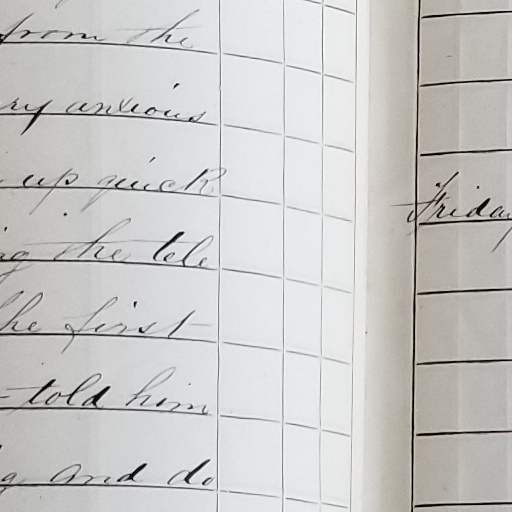 from the
ry anxious
up quick
ng the tele
he first
told him
g and do
Friday